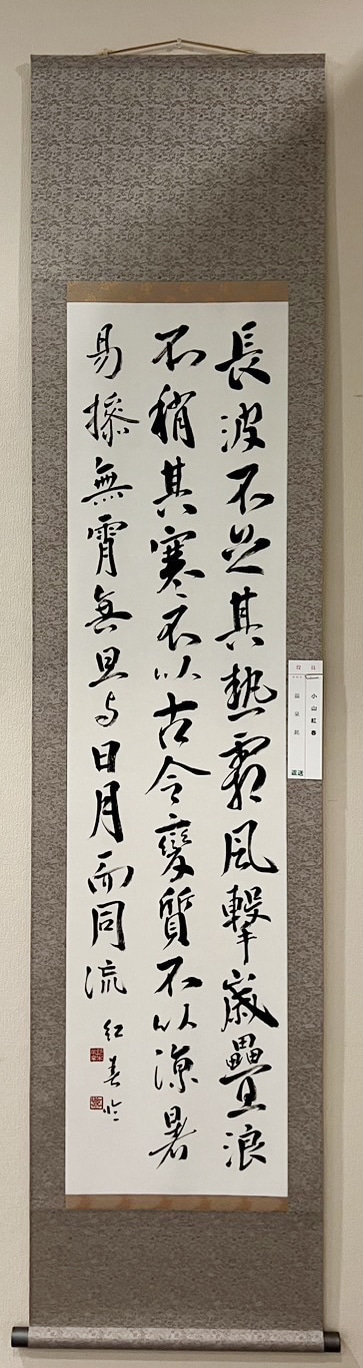 長波不其熱霜風擊歲疊浪
不稍其寒不以古今變質不以涼暑
易操無霄無旦与日月而同流
紅春臨
小山紅春
温泉銘
返送